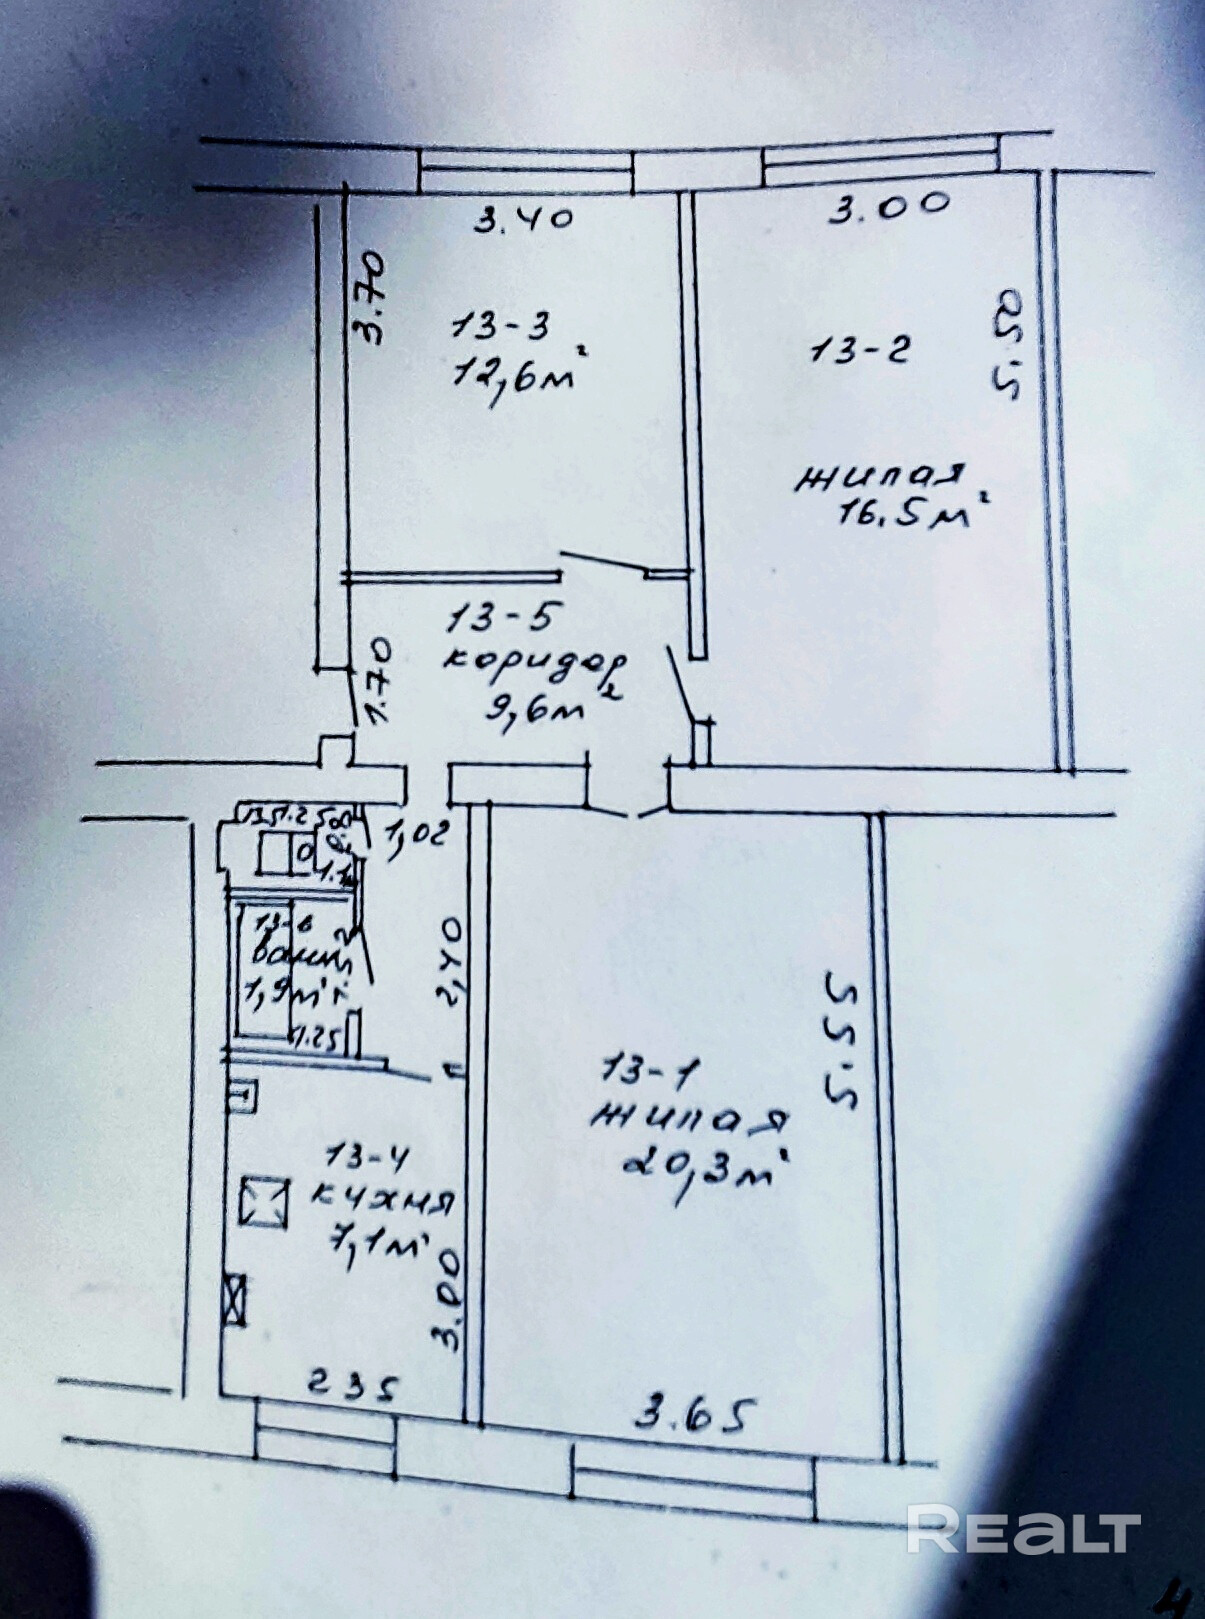 3.40
3.00
3.70
13-3
12,6м²
5.50
13-2
жилая
16.5м²
13-5
коридор
9,6м²
1.70
1,02
2,40
13-6
1,9м²
1.25
5.55
13-1
жилая
20,3м²
13-4
кухня
7,1м²
3.00
235
3.65
REALT
4